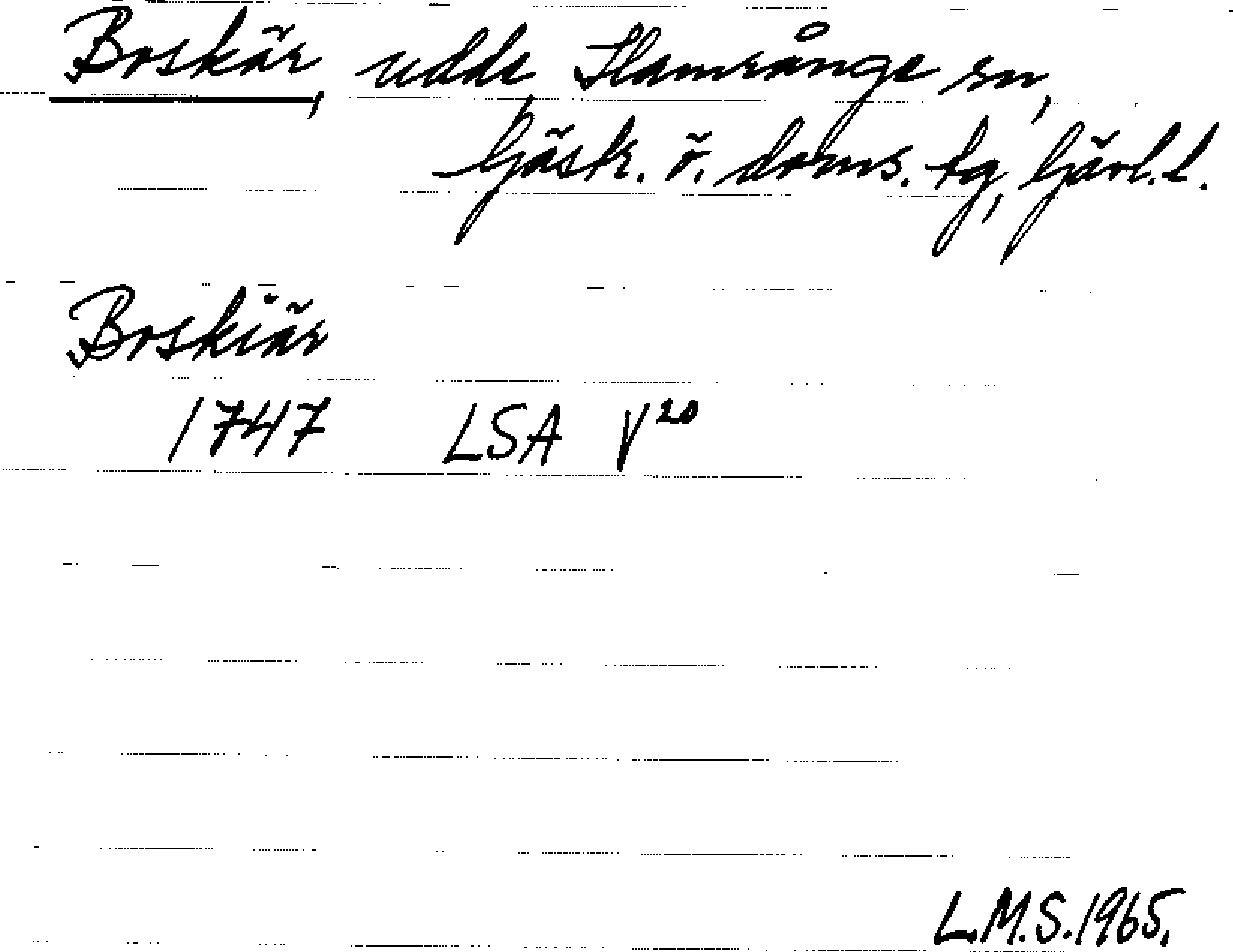 Boskär, udde, Hamrånge sn,
Gästr. ö. doms. tg, Gävl. l.
Boskiär
1747 LSA V²⁰
L.M.S. 1965.